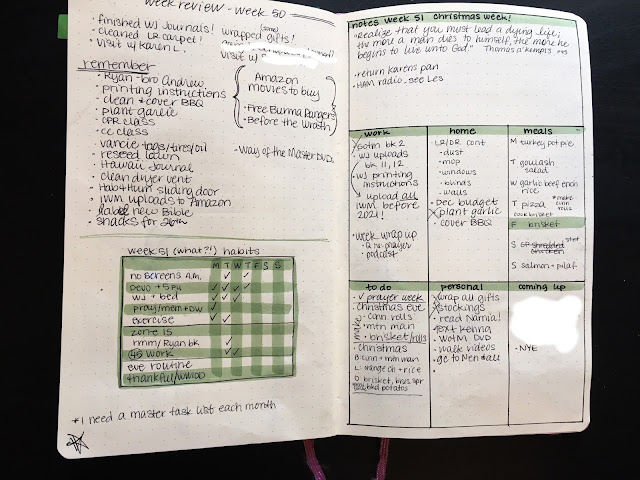 week review - week 50
- finished WJ Journals!
- cleaned LR carpet!
- visit w/ Karen L.
wrapped (some) gifts!
visit w/
remember
- Ryan - bro Andrew
- printing instructions
- clean & cover BBQ
- plant garlic
- CPR class
- CC class
- vancie tags/tires/oil
- reseed lawn
- Hawaii Journal
- clean dryer vent
- Hab 4 Hum sliding door
- IWM uploads to Amazon
- label new Bible
- snacks for 26th
Amazon movies to buy
- Free Burma Rangers
- Before the Wrath
- Way of the Master DVD
week 51 (what?!) habits
M T W T F S S
no screens A.M.
Devo + 5 Ps
WJ + bed
pray/mem + DW
exercise
zone 15
rmm/Ryan bk
45 work
eve routine
thankful/WWIDD
*I need a master task list each month
notes week 51 christmas week!
"Realize that you must lead a dying life;
the more a man dies to himself, the more he
begins to live unto God." Thomas a'Kempis
- return Karens pan
- HAM radio - see Les
work
SOTM bk 2
WJ uploads
bk 11, 12
WJ printing
instructions
upload all
IWM before
2021!
- week wrap up
prayer
podcast
home
LR/DR cont
- dust
- mop
- windows
- blinds
- walls
- Dec budget
- plant garlic
- cover BBQ
meals
M turkey pot pie
T goulash
salad
W garlic beef ench
rice
T pizza *make cinn rolls
cook brisket
F brisket
S shredded chicken
S salmon + pilaf
to do
- prayer week
- christmas eve
make
- cinn rolls
- mtn man
- brisket/rolls
- christmas
B: cinn + mtn man
L: orange ch + rice
D: brisket, brus spr
bkd potatos
personal
wrap all gifts
stockings
- read Narnia!
- text Kenna
- WOTM DVD
- walk videos
coming up
- NYE